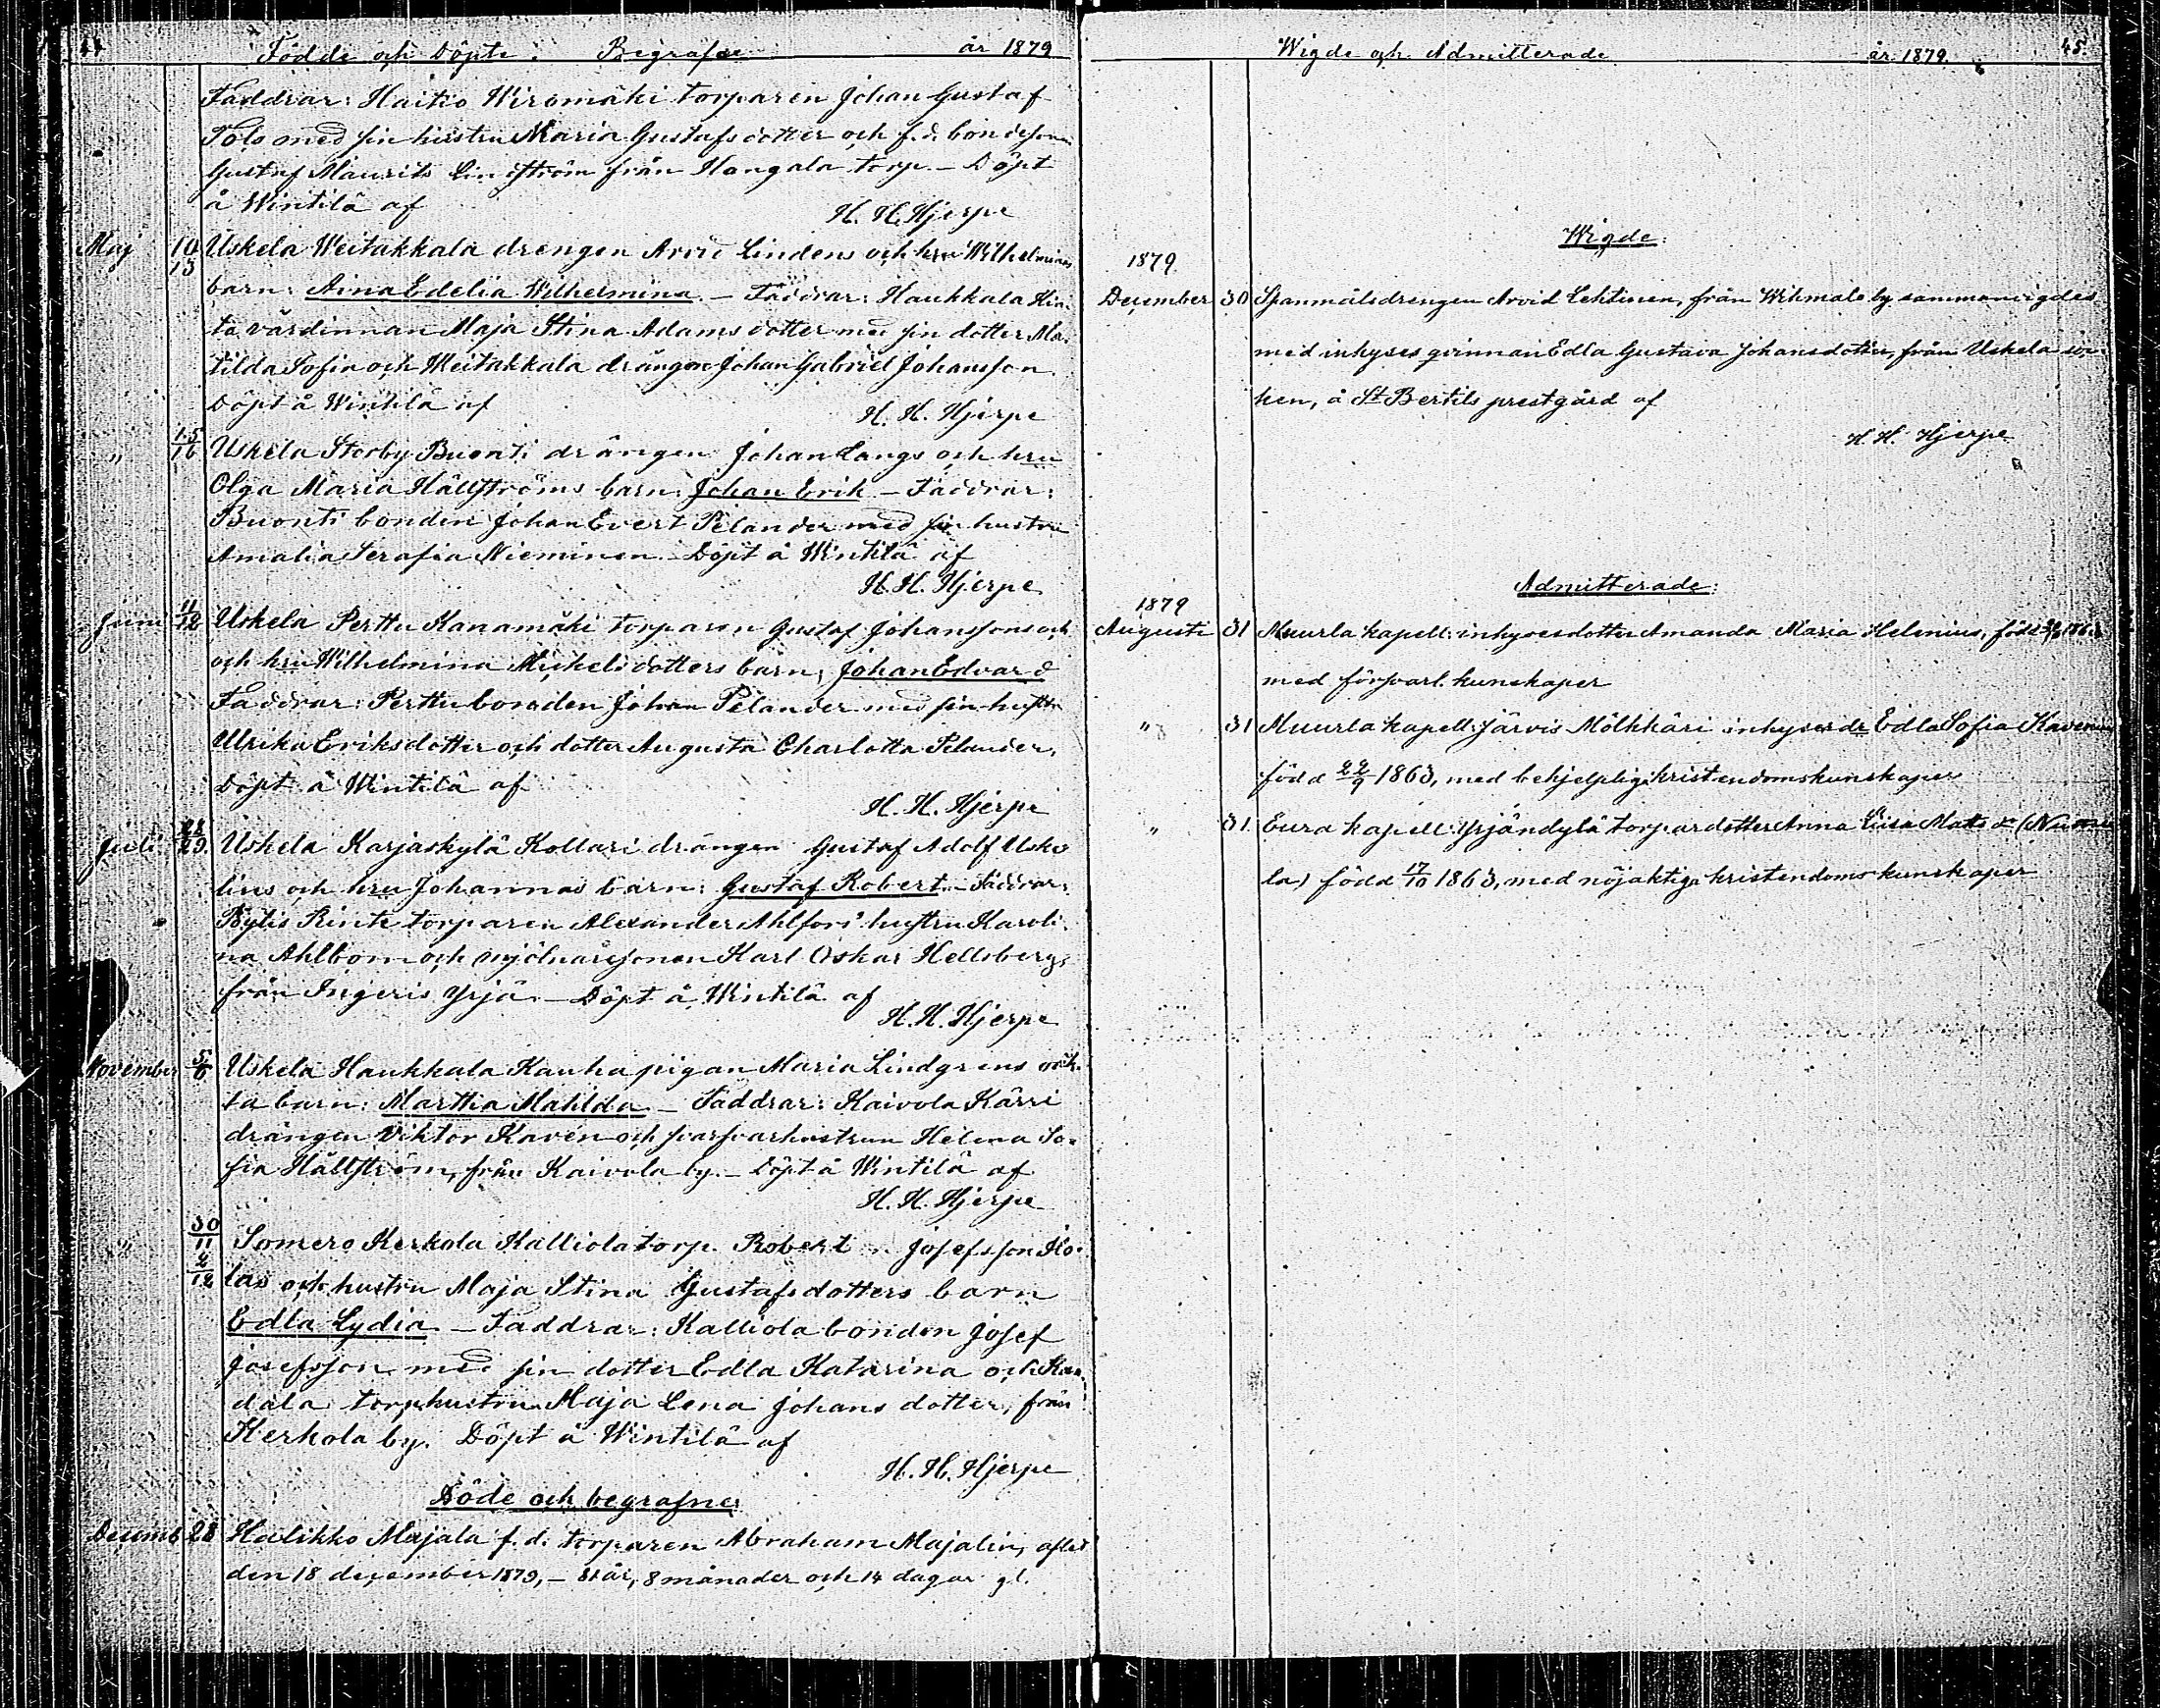 44 Födde och Döpte. Begrafne år 1879
Faddrar: Haitio Wiromäki torparen Johan Gustaf
Tols med sin hustru Maria Gustafsdotter och f.d. bondeson
Gustaf Maurits Lindström från Hangala torp. – Döpt
å Wintilä af
H. H. Hjerpe
Maj 10/13 Uskela Weitakkala drengen Arvid Lindens och hru Wilhelminas
barn: Aina Edelia Wilhelmina. – Faddrar: Haukkala
värdinnan Maja Stina Adamsdotter med sin dotter Ma-
tilda Sofia och Weitakkala drängen Johan Gabriel Johansson.
Döpt å Wintilä af
H. H. Hjerpe
" 15/16 Uskela Storby Buonti drängen Johan Langs och hru
Olga Maria Hällströms barn: Johan Erik – Faddrar:
Buonti bonden Johan Evert Pelander med sin hustru
Amalia Serafia Nieminen. Döpt å Wintilä af
H. H. Hjerpe
Juni 11/12 Uskela Perttu Kanamäki torparen Gustaf Johanssons och
och hru Wilhelmina Mickelsdotters barn, Johan Edvard
Faddrar: Perttu bonden Johan Pelander med sin hustru
Ulrika Eriksdotter och dotter Augusta Charlotta Pelander,
Döpt å Wintilä af
H. H. Hjerpe
Juli 28/29 Uskela Karjaskylä Kollari drängen Gustaf Adolf Uske-
lins och hru Johannas barn: Gustaf Robert. – Faddrar:
Pytis Rinti torparen Alexander Ahlfors' hustru Karoli-
na Ahlbom och mjölnäresonen Karl Oskar Hellsberg,
från Ingeris Yrjä. – Döpt å Wintilä af
H. H. Hjerpe
November 5/6 Uskela Haukkala Kauha pigan Maria Lindgrens oäk-
ta barn: Martha Matilda – Faddrar: Kaivola Kärri
drängen Viktor Kavén och hustrun Helena So-
fia Hällström, från Kaivola by. – Döpt å Wintilä af
H. H. Hjerpe
" 30/11 Somero Kerkola Kalliola torp. Robert Josefsson Ko-
2/12 las och hustru Maja Stina Gustafsdotters barn
Edla Lydia – Faddrar: Kalliola bonden Josef
Josefsson med sin dotter Edla Katarina och
dala torphustru Maja Lena Johansdotter, från
Kerkola by. Döpt å Wintilä af
H. H. Hjerpe
Döde och begrafne
Decemb 28 Halikko Majala f.d. torparen Abraham Majalin, afled
den 18 december 1879, – 81 år, 8 månader och 14 dagar gl.
Wigde och Admitterade år 1879. 45.
Wigde:
1879
December 30 Spanmålsdrengen Arvid Lehtinen, från Wihmalo by sammanvigdes
med inhyses qvinnan Edla Gustava Johansdotter, från Uskela soc-
ken, å St Bertils prestgård af
H. H. Hjerpe
Admitterade:
1879
Augusti 31 Muurla kapell: inhysesdotter Amanda Maria Helenius, född
med försvarl. kunskaper
" 31 Muurla kapell: Järvis Mölkkäri inhyses dr Edla Sofia
född 22/9 1863, med behjelpliga kristendomskunskaper
" 31. Eura kapell: Yrjändylä torpardotter Anna Lisa Mats dr
la) född 17/10 1863, med nöjaktiga kristendoms kunskaper